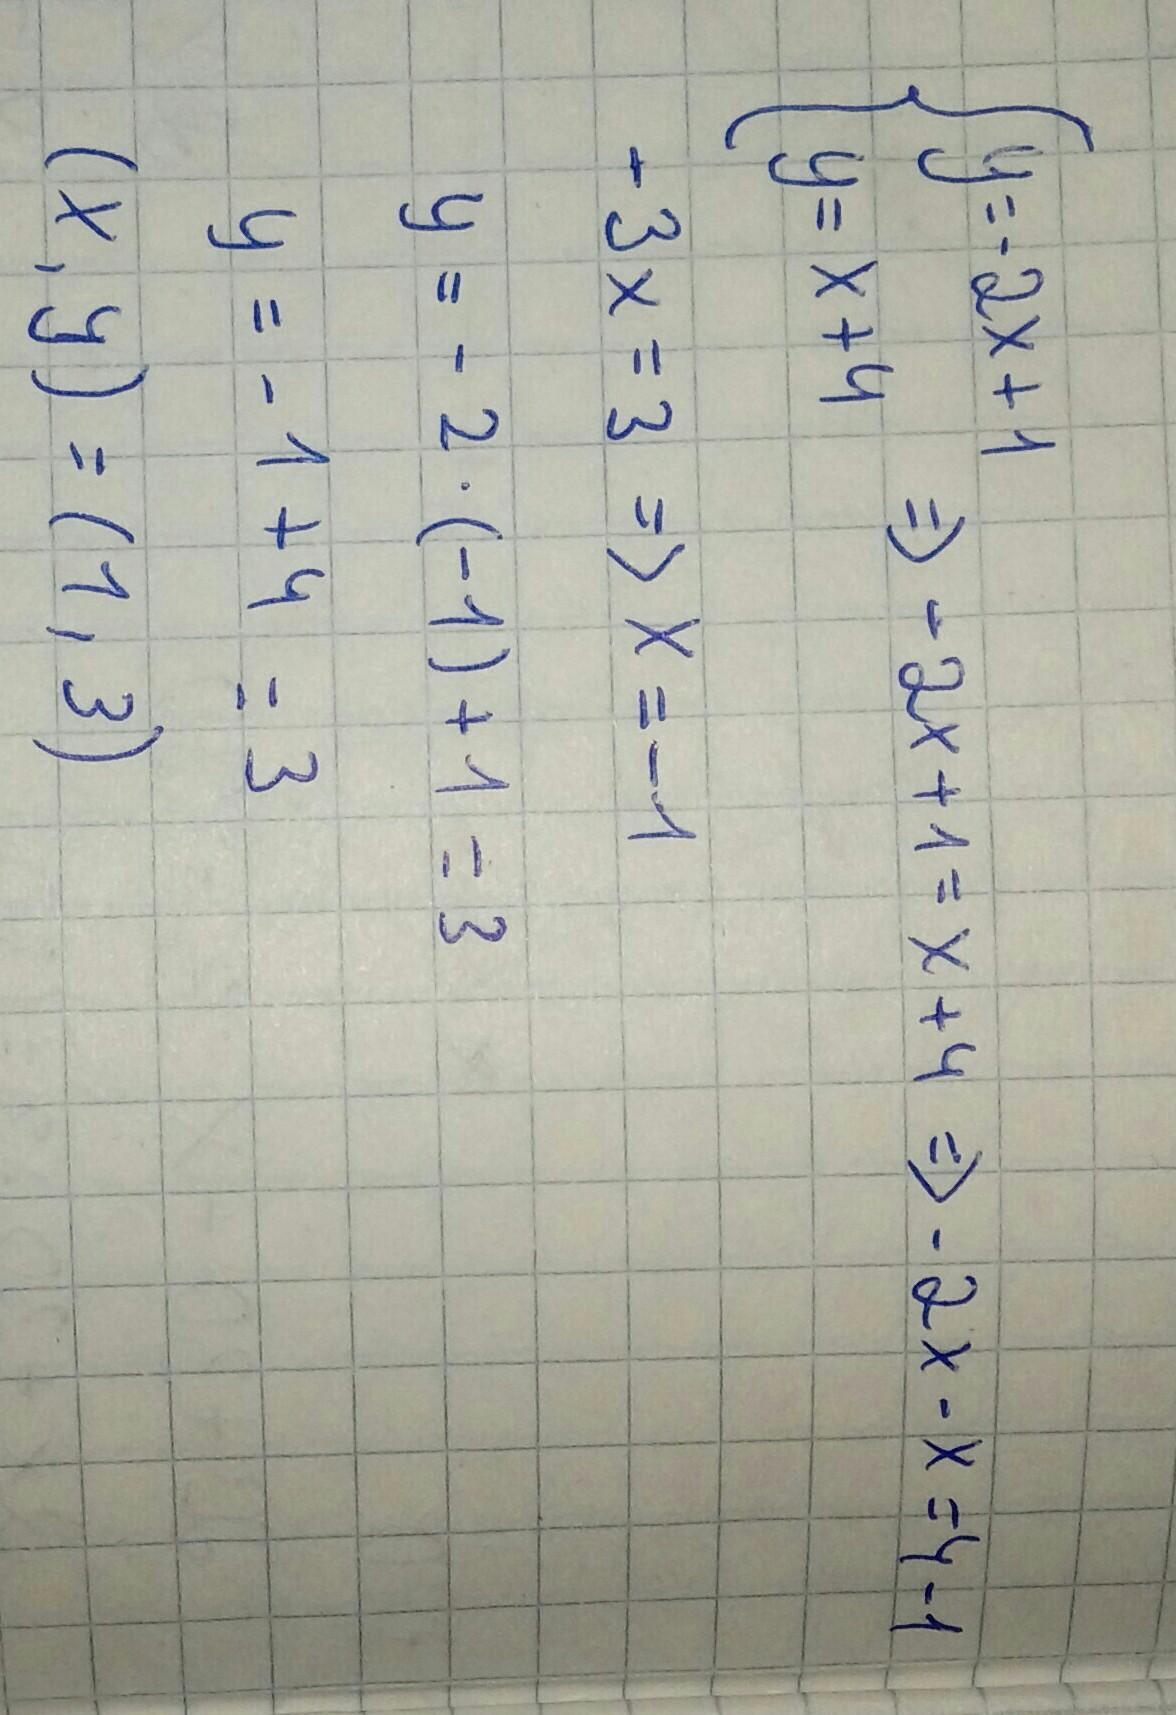 { y=-2x+1
y=x+4 => -2x+1=x+4 => -2x-x=4-1
-3x=3 => x=-1
y=-2·(-1)+1=3
y=-1+4=3
(x,y)=(1,3)